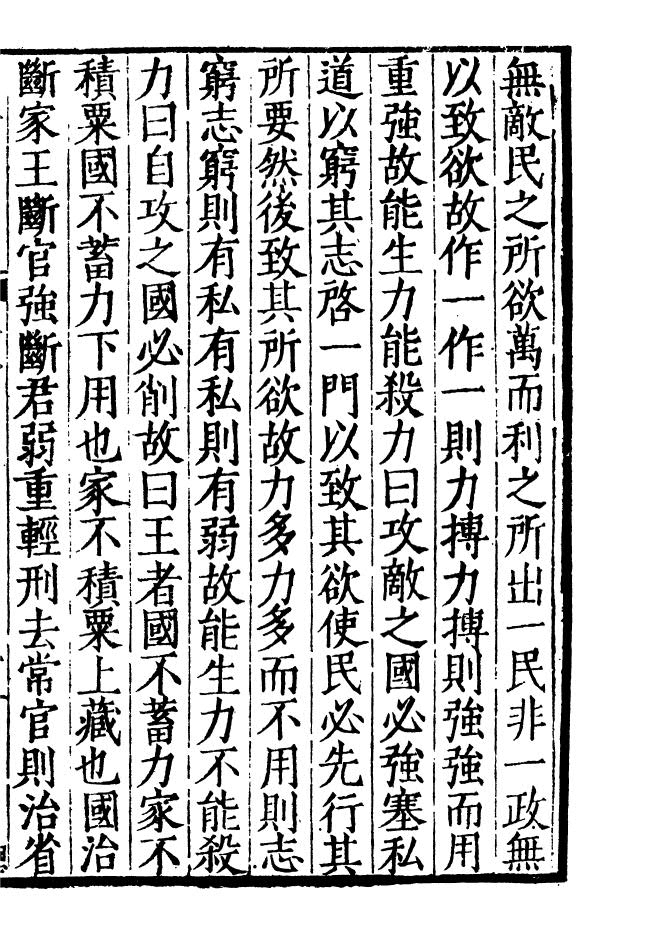 無敵民之所欲萬而利之所出一民非一政無
以致欲故作一作一則力摶力摶則強強而用
重強故能生力能殺力曰攻敵之國必強塞私
道以窮其志啓一門以致其欲使民必先行其
所要然後致其所欲故力多力多而不用則志
窮志窮則有私有私則有弱故能生力不能殺
力曰自攻之國必削故曰王者國不蓄力家不
積粟國不蓄力下用也家不積粟上藏也國治
斷家王斷官強斷君弱重輕刑去常官則治省